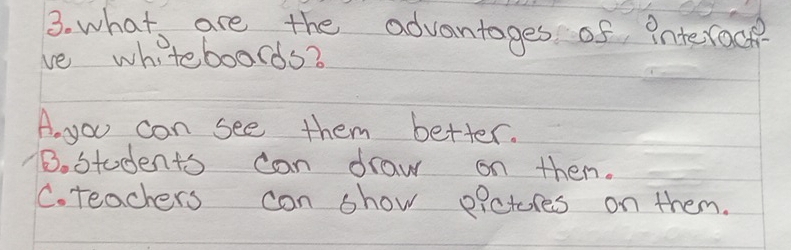 3. what are the advantages of interacti-
ve whiteboards?
A. you can see them better.
B. students can draw on them.
C. Teachers can show pictures on them.